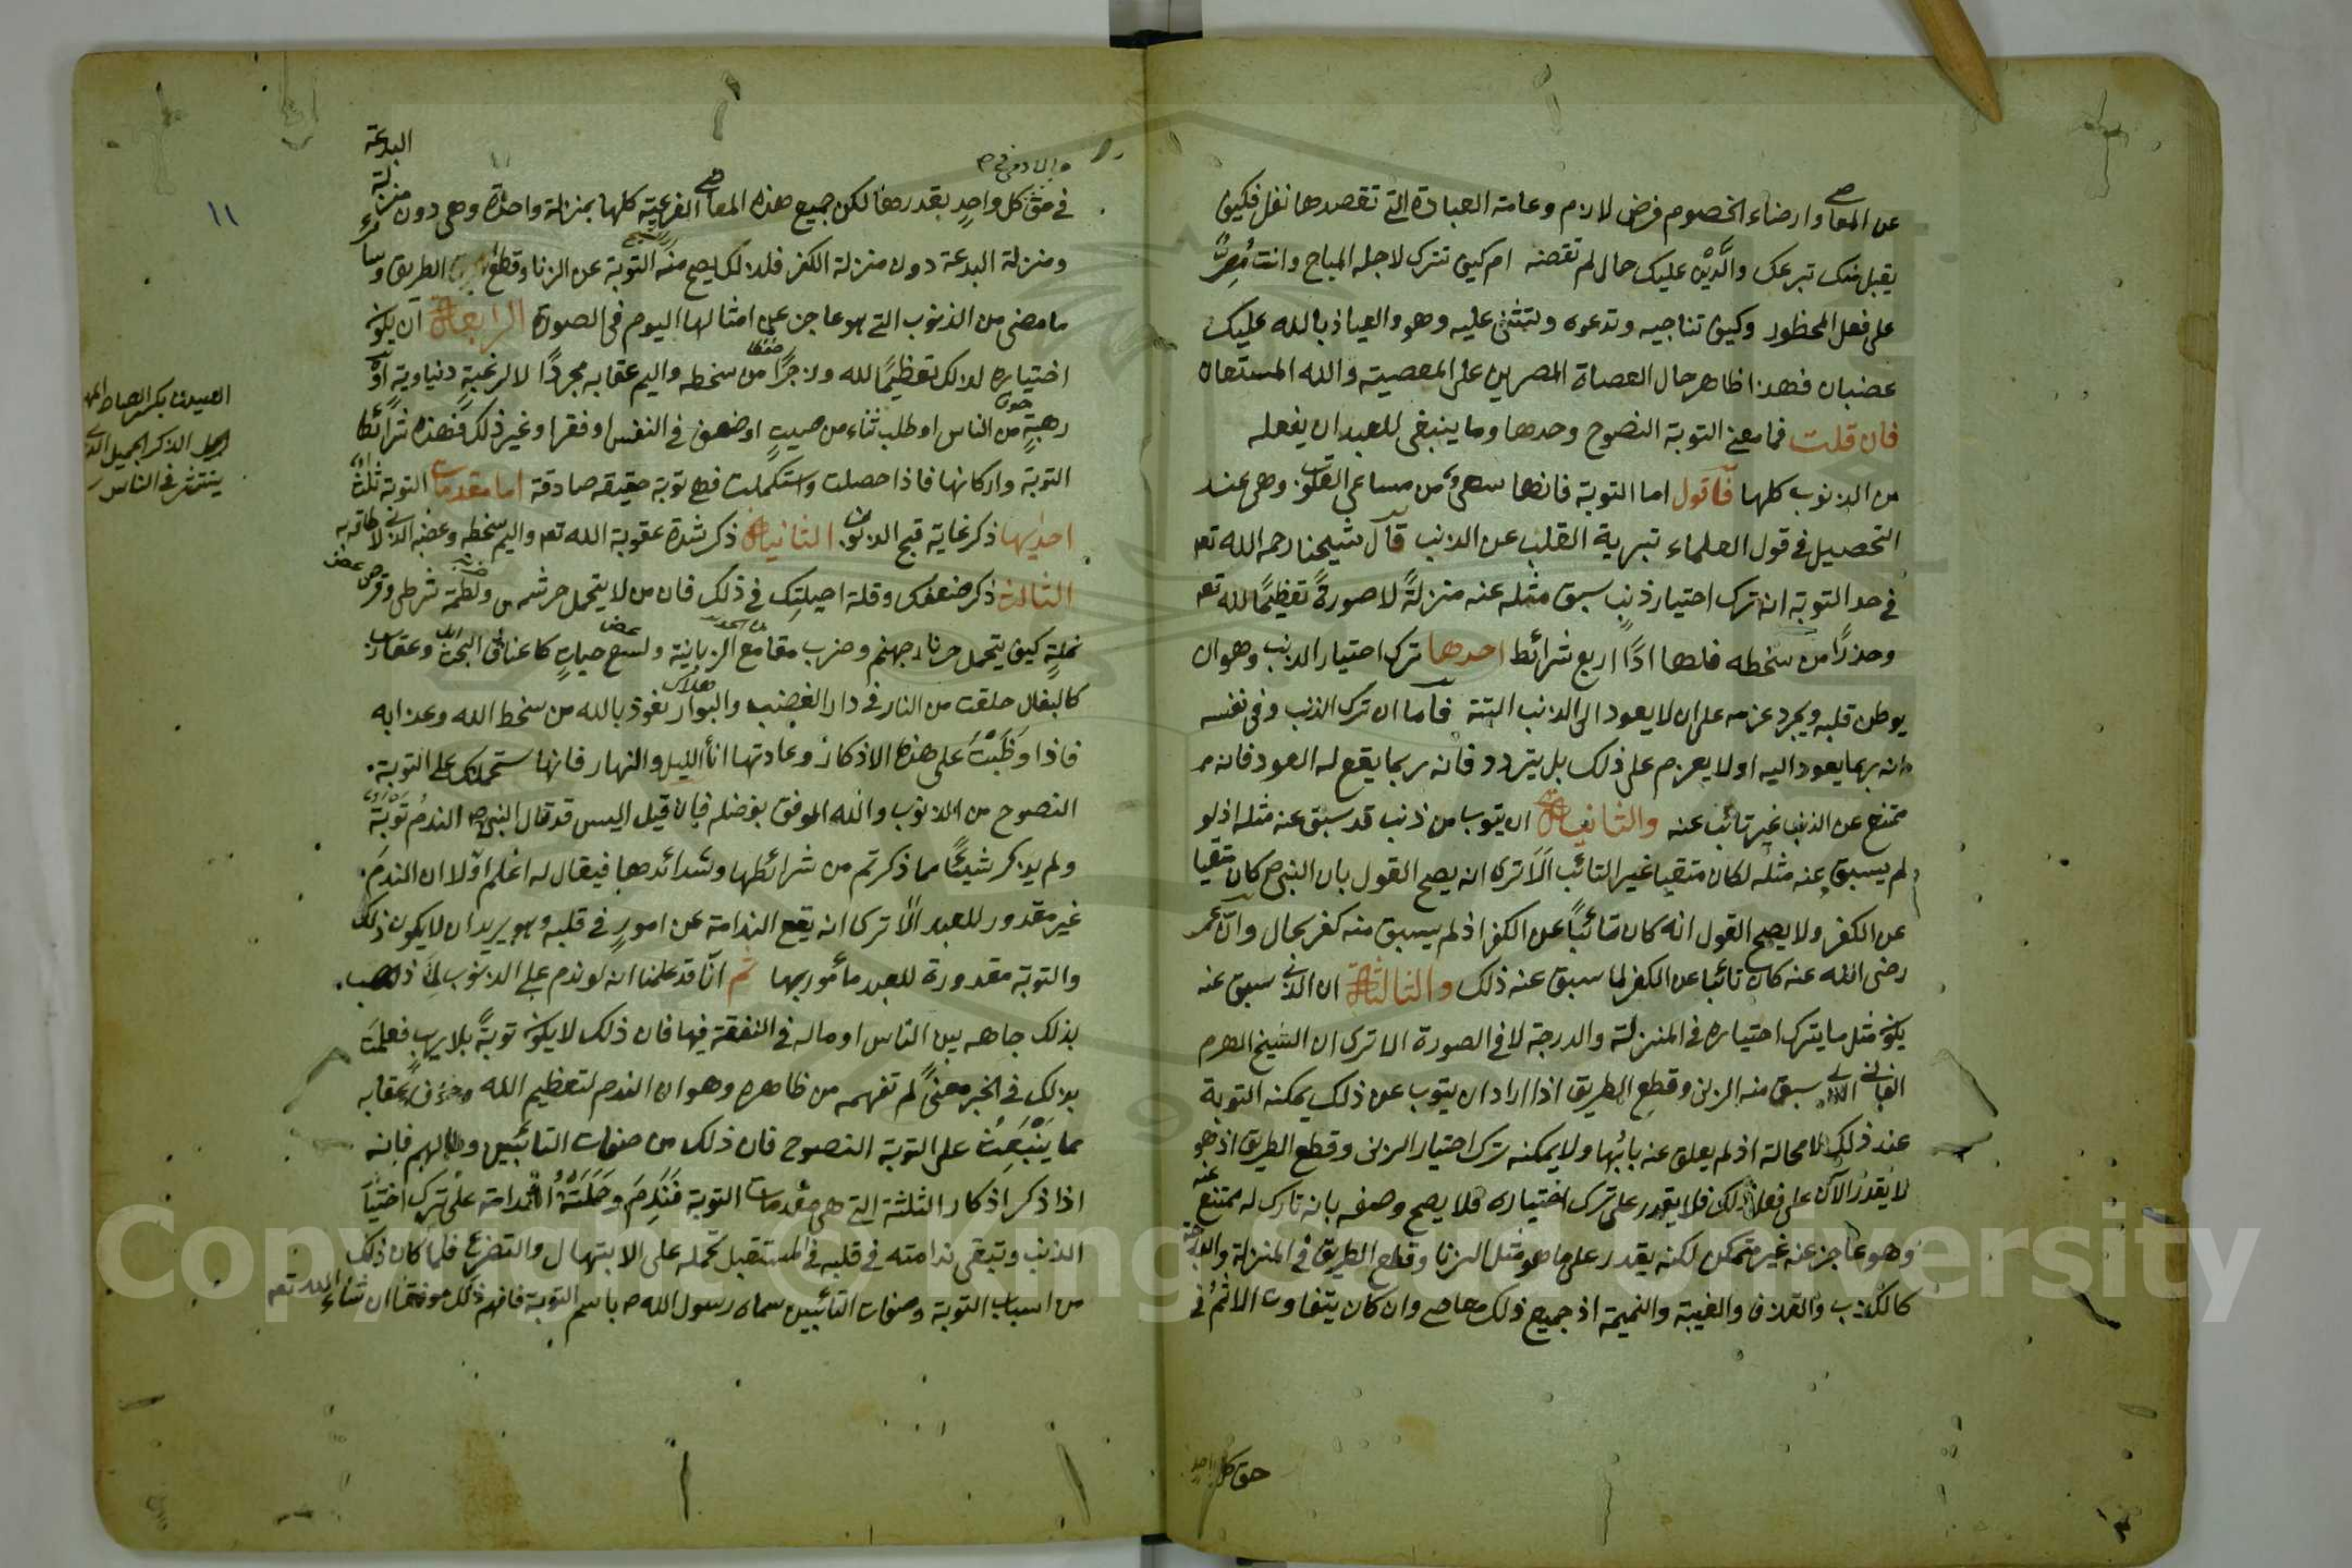 عن المعاصى وارضاء الخصوم فرض لازم وعامة العبادة التى تقصدها نفل فكيف
يقبل منك تبرعك والدَّيْن عليك حال لم تقضه ام كيف تترك لاجله المباح وانت مُصِرٌّ
على فعل المحظور وكيف تناجيه وتدعوه وتثنى عليه وهو والعياذ بالله عليك
غضبان فهذا ظاهر حال العصاة المصرين على المعصية والله المستعان
فان قلت فما معنى التوبة النصوح وحدها وما ينبغى للعبد ان يفعله
من الذنوب كلها فاقول اما التوبة فانها سعى من مساعى القلوب وهى عند
التحصيل فى قول العلماء تبرية القلب عن الذنب قال شيخنا رحمه الله تعه
فى حد التوبة انه ترك اختيار ذنب سبق مثله عنه منزلةً لا صورةً تعظيمًا لله تعه
وحذرًا من سخطه فلها اذًا اربع شرائط احدها ترك اختيار الذنب وهو ان
يوطن قلبه ويجرد عزمه على ان لا يعود الى الذنب البتة فاما ان ترك الذنب وفى نفسه
انه ربما يعود اليه او لا يعزم على ذلك بل يتردد فانه ربما يقع له العود فانه
ممتنع عن الذنب غير تائب عنه والثانية ان يتوب من ذنب قد سبق عنه مثله اذ لو
لم يسبق عنه مثله لكان متقيا غير التائب الا ترى انه يصح القول بان النبى ص كان متقيا
عن الكفر ولا يصح القول انه كان تائبًا عن الكفر اذ لم يسبق منه كفر بحال وان عمر
رضى الله عنه كان تائبا عن الكفر لما سبق عنه ذلك والثالثة ان الذى سبق عنه
يكون مثل ما يترك اختياره فى المنزلة والدرجة لا فى الصورة الا ترى ان الشيخ الهرم
الفانى الذى سبق منه الزنى وقطع الطريق اذا اراد ان يتوب عن ذلك يمكنه التوبة
عند ذلك لا محالة اذ لم يغلق عنه بابُها ولا يمكنه ترك اختيار الزنى وقطع الطريق اذ هو
لا يقدر الآن على فعل ذلك فلا يقدر على ترك اختياره فلا يصح وصفه بانه تارك له ممتنع عنه
وهو عاجز عنه غير متمكن لكنه يقدر على ما هو مثل الزنا وقطع الطريق فى المنزلة والدرجة
كالكذب والقذف والغيبة والنميمة اذ جميع ذلك معاصى وان كان يتفاوت الاثمُ فى
حق كل واحد
١١
فى حق كل واحدٍ بقدرها لكن جميع هذه المعاصى الفرعية كلها بمنزلة واحدة وهى دون منزلة البدعة
ومنزلة البدعة دون منزلة الكفر فلذلك يصح منه التوبة عن الزنا وقطع الطريق وسائر
ما مضى من الذنوب التى هو عاجز عن امثالها اليوم فى الصورة الرابعة ان يكون
اختياره لذلك تعظيمًا لله وحذرًا من سخطه واليم عقابه مجردًا لا لرغبةٍ دنياويةٍ او
رهبةٍ من الناس او طلب ثناء من صيتٍ او ضعف فى النفس او فقرا وغير ذلك فهذه شرائط
خوف
التوبة واركانها فاذا حصلت واستكملت فهى توبة حقيقه صادقة اما مقدمات التوبة ثلث
احديها ذكر غاية قبح الذنوب الثانية ذكر شدة عقوبة الله تعه واليم سخطه وغضبه الذى لا طاقة به
الثالث ذكر ضعفك وقلة احيلتك فى ذلك فان من لا يتحمل حر شمس ولطمة شرطى وقرص
نملةٍ كيف يتحمل حر نار جهنم وضرب مقامع الزبانية ولسع حياتٍ كاعناق البخت وعقارب
كالبغال خلقت من النار فى دار الغضب والبوار نعوذ بالله من سخط الله وعذابه
هلاك
فاذا وَظَبْتَ على هذه الاذكار وعادتها اناء الليل والنهار فانها ستحملك على التوبة
النصوح من الذنوب والله الموفق بفضله فان قيل اليس قد قال النبى ص الندمُ تَوْبَةٌ
ولم يذكر شيئًا مما ذكرتم من شرائطها وشدائدها فيقال له اعلم اولا ان الندمَ
غير مقدور للعبد الا ترى انه يقع الندامة عن امورٍ فى قلبه وهو يريد ان لا يكون ذلك
والتوبة مقدورة للعبد مأمور بها ثم انا قد علمنا انه لو ندم على الذنوب لما ذهب
بذلك جاهه بين الناس او ماله فى النفقة فيها فان ذلك لا يكون توبةً بلا ريبٍ فعلمتَ
بذلك فى الخبر معنىً لم تفهمه من ظاهره وهو ان الندم لتعظيم الله وخوف عقابه
مما يَنْبَعِثُ على التوبة النصوح فان ذلك من صفات التائبين وحالهم فانه
اذا ذكر اذكار الثلثة التى هى مقدمات التوبة فَنَدِمَ وحَمَلَتْهُ الندامة على ترك اختيار
الذنب وتبقى ندامته فى قلبه فى المستقبل تحمله على الابتهال والتضرع فلما كان ذلك
من اسباب التوبة وصفات التائبين سماه رسول الله ص باسم التوبة فافهم ذلك موفقا ان شاء الله تعه
الذكر الجميل الذى
ينتشر فى الناس
Copyright © King Saud University